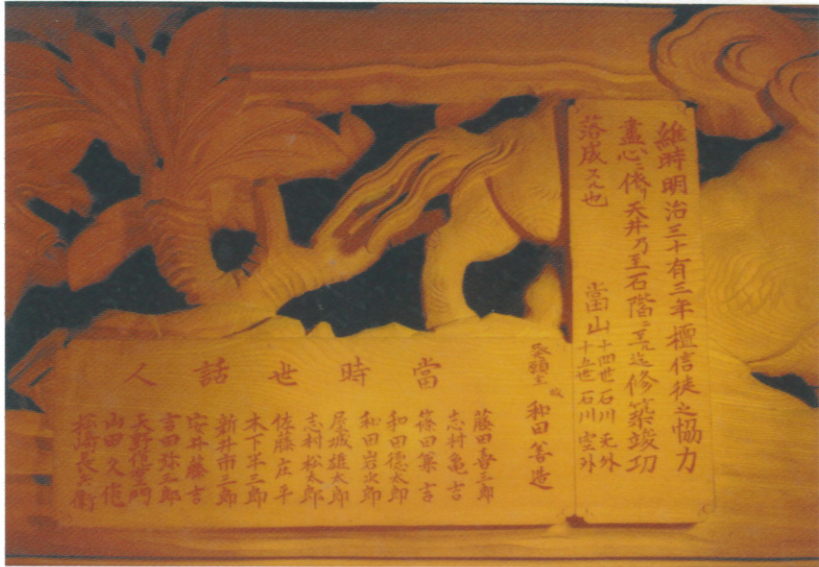 維時明治三十有三年檀信徒之恊力
盡心ニ依リ天井乃至石階ニ至ル迄修築竣功
落成スル也
當山十四世石川天外
十五世石川空外
發頭主 和田善造
當時世話人
藤田喜三郎
志村亀吉
篠田粂吉
和田徳太郎
和田岩次郎
屋城雄太郎
志村松太郎
佐藤庄平
木下半三郎
新井市三郎
安井藤吉
吉田弥三郎
天野
山田久
長兵衛